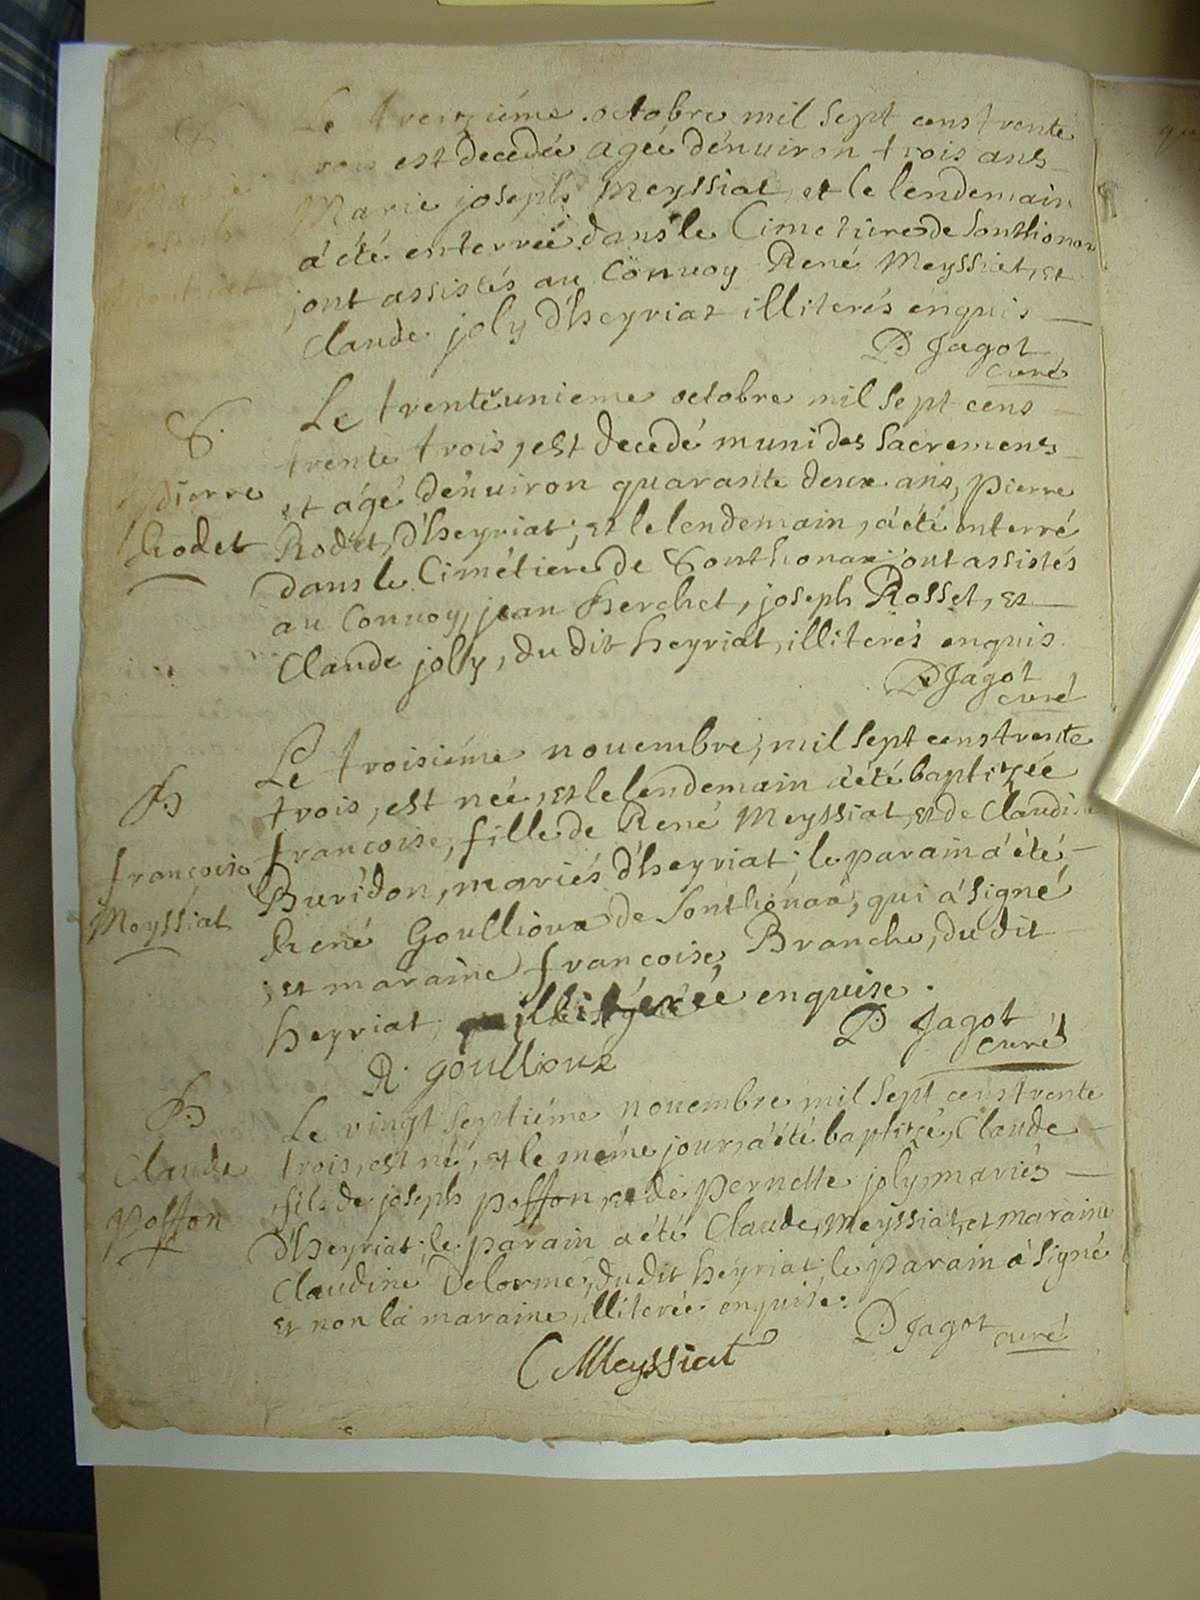 S.
Le treiziéme octobre mil sept cens trente
trois est decedée agée d'enuiron trois ans
Marie joseph Meyssiat, et le lendemain
a été enterrée dans le Cimetiere de Sonthonax
, ont assistés au Conuoy René Meyssiat, et
Claude joly d'heyriat illiterés enquis
P. Jagot
curé
S.
pierre
Rodet
Le trente unieme octobre mil sept cens
trente trois, est decedé muni des sacremens
et agé d'enuiron quarante deux ans, pierre
Rodet, d'heyriat, et le lendemain, a été enterré
dans le Cimétiere de Sonthonax, ont assistés
au Conuoy, jean Berchet, joseph Rosset, et
Claude joly, du dit heyriat, illiterés enquis.
P. Jagot
curé
B
francoise
Meyssiat
Le troisiéme nouembre, mil sept cens trente
trois, est née, et le lendemain a été baptizée
francoise, fille de René Meyssiat, et de Claudine
Buridon, mariés d'heyriat, le parain a été
René Goullioux de Sonthonax, qui a signé
, et maraine francoise Branche, du dit
heyriat, illiterée enquise.
P. Jagot
curé
R. goullioux
B
Claude
poffon
Le vingt septiéme nouembre mil sept cens trente
trois, est né, et le méme jour, a été baptizé, Claude
fils de joseph poffon et de pernette joly, mariés
d'heyriat, le parain a été Claude, Meyssiat, et maraine
Claudine Delorme, du dit heyriat, le parain a signé
et non la maraine, illiterée enquise.
P. Jagot curé
C Meyssiat